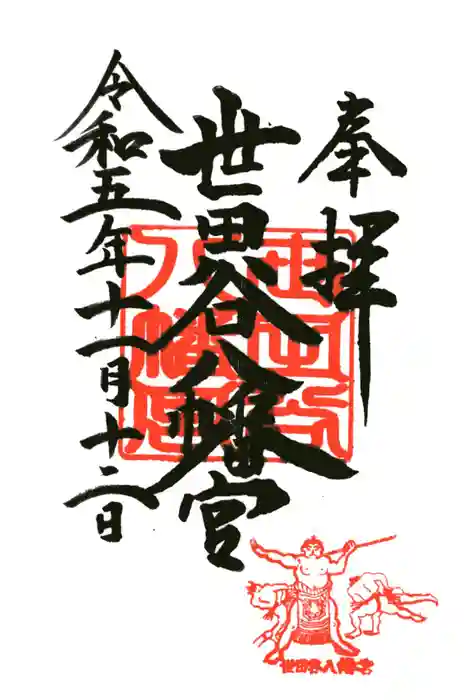 奉拝
世田谷八幡宮
令和五年十一月十二日
世田谷
八幡宮
世田谷八幡宮